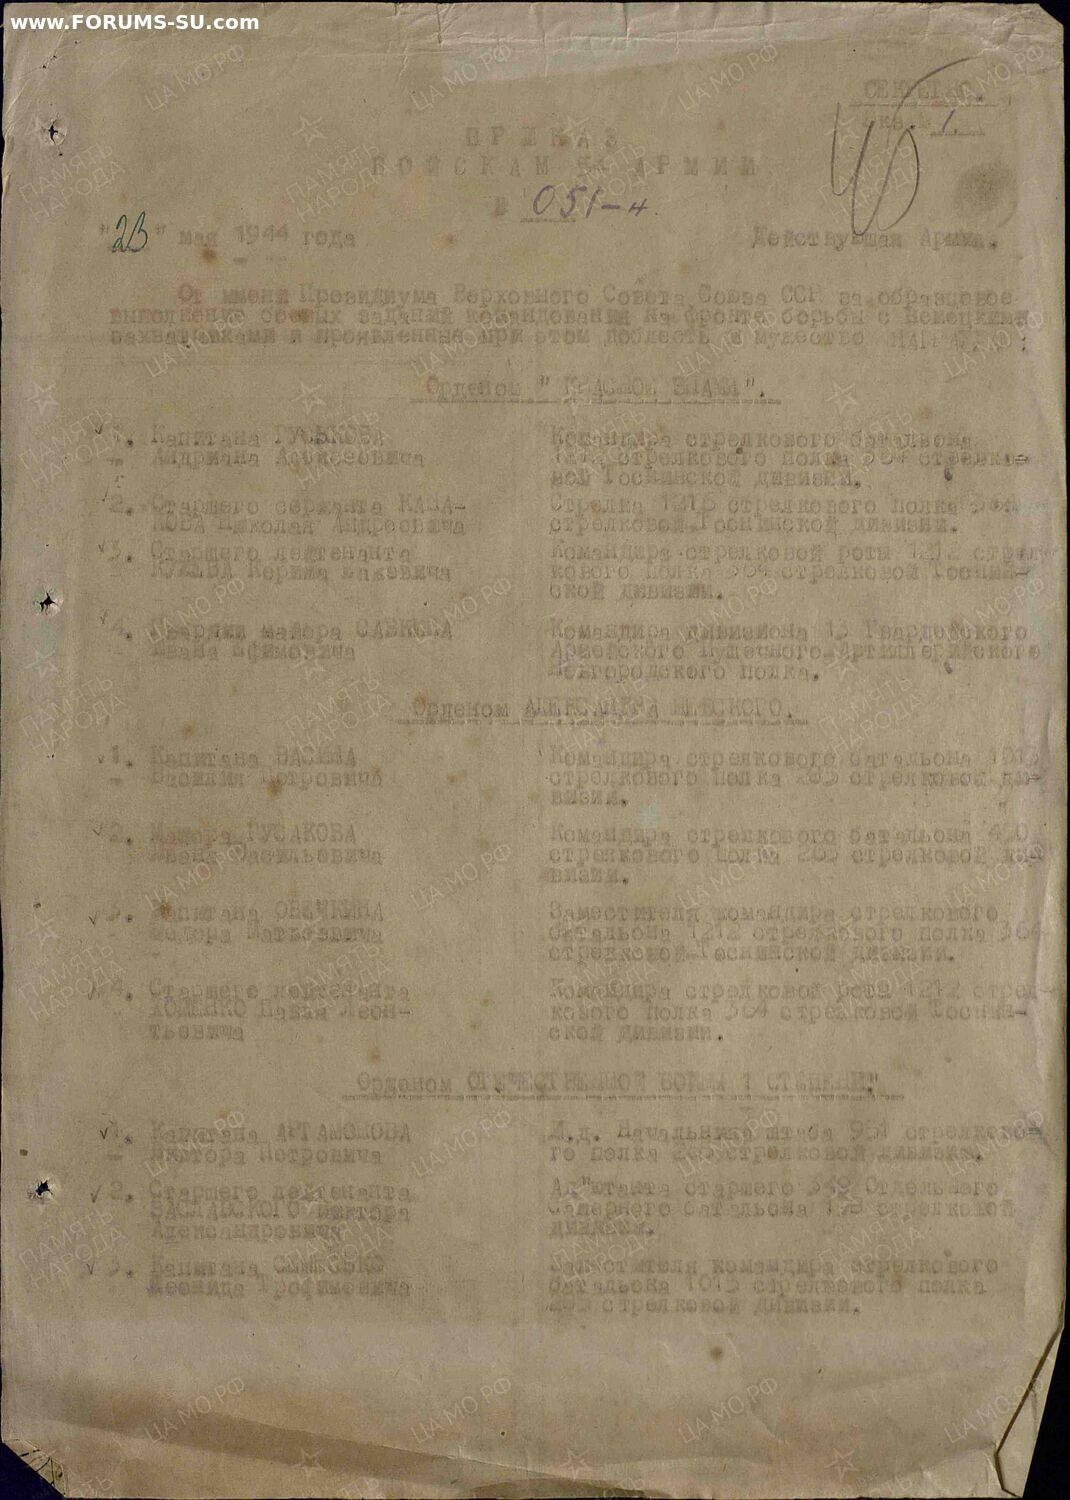 www.FORUMS-SU.com
СЕКРЕТНО.
экз. 1
ПРИКАЗ
ВОЙСКАМ 54 АРМИИ
№ 051-н.
"23" мая 1944 года Действующая Армия.
От имени Президиума Верховного Совета Союза ССР за образцовое
выполнение боевых заданий командования на фронте борьбы с немецкими
захватчиками и проявленные при этом доблесть и мужество НАГРАЖДАЮ:
Орденом "КРАСНОЕ ЗНАМЯ".
1. Капитана ГУСЬКОВА Командира стрелкового батальона
Андриана Алексеевича 1212 стрелкового полка 364 стрелко-
вой Тоснинской дивизии.
2. Старшего сержанта КАЗА- Стрелка 1216 стрелкового полка 364
КОВА Николая Андреевича стрелковой Тоснинской дивизии.
3. Старшего лейтенанта Командира стрелковой роты 1212 стрел-
Керима кового полка 364 стрелковой Тоснин-
ской дивизии.
4. Гвардии майора САВКОВА Командира дивизиона 13 Гвардейского
Ивана Ефимовича Армейского Пушечного Артиллерийского
Новгородского полка.
Орденом АЛЕКСАНДРА НЕВСКОГО.
1. Капитана ВАСИНА Командира стрелкового батальона
Василия Петровича стрелкового полка 265 стрелковой ди-
визии.
2. Майора ГУСАКОВА Командира стрелкового батальона 450
Ивана Васильевича стрелкового полка 265 стрелковой ди-
визии.
3. Капитана ОВЕЧКИНА Заместителя командира стрелкового
Федора Матвеевича батальона 1212 стрелкового полка 364
стрелковой Тоснинской дивизии.
4. Старшего лейтенанта Командира стрелковой роты 1212 стрел-
ХОМЕНКО Павла Леон- кового полка 364 стрелковой Тоснин-
тьевича ской дивизии.
Орденом ОТЕЧЕСТВЕННОЙ ВОЙНЫ 1 СТЕПЕНИ"
1. Капитана АРТАМОНОВА И.д. Начальника штаба 951 стрелково-
Виктора Петровича го полка 265 стрелковой дивизии.
2. Старшего лейтенанта Ад"ютанта старшего Отдельного
ЗАСЛАВСКОГО Виктора Саперного батальона 198 стрелковой
Александровича дивизии.
3. Капитана Заместителя командира стрелкового
Леонида Трофимовича батальона стрелкового полка
265 стрелковой дивизии.